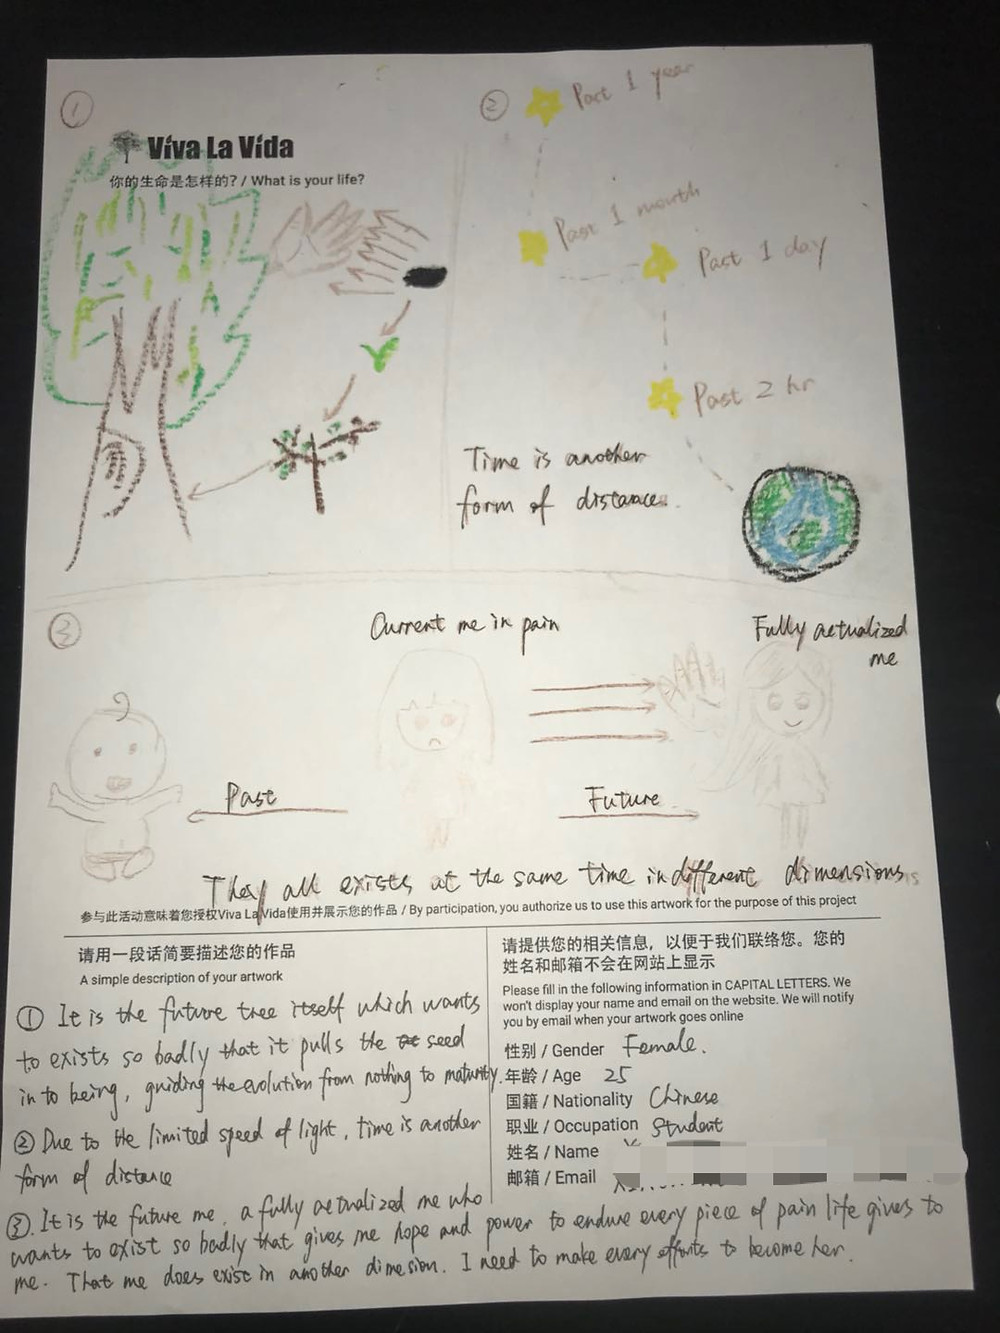 ①
Viva La Vida
你的生命是怎样的? / What is your life?
②
Past 1 year
Past 1 month
Past 1 day
Past 2 hr
Time is another
form of distance.
③
Current me in pain
Fully actualized
me
Past
Future
They all exists at the same time in different dimensions
参与此活动意味着您授权Viva La Vida使用并展示您的作品 / By participation, you authorize us to use this artwork for the purpose of this project
请用一段话简要描述您的作品
A simple description of your artwork
① It is the future tree itself which wants
to exists so badly that it pulls the seed
in to being, guiding the evolution from nothing to maturity.
② Due to the limited speed of light, time is another
form of distance
③. It is the future me, a fully actualized me who
wants to exist so badly that gives me hope and power to endure every piece of pain life gives to
me. That me does exist in another dimesion. I need to make every efforts to become her.
请提供您的相关信息，以便于我们联络您。您的
姓名和邮箱不会在网站上显示
Please fill in the following information in CAPITAL LETTERS. We
won't display your name and email on the website. We will notify
you by email when your artwork goes online
性别 / Gender Female.
年龄 / Age 25
国籍 / Nationality Chinese
职业 / Occupation Student
姓名 / Name
邮箱 / Email